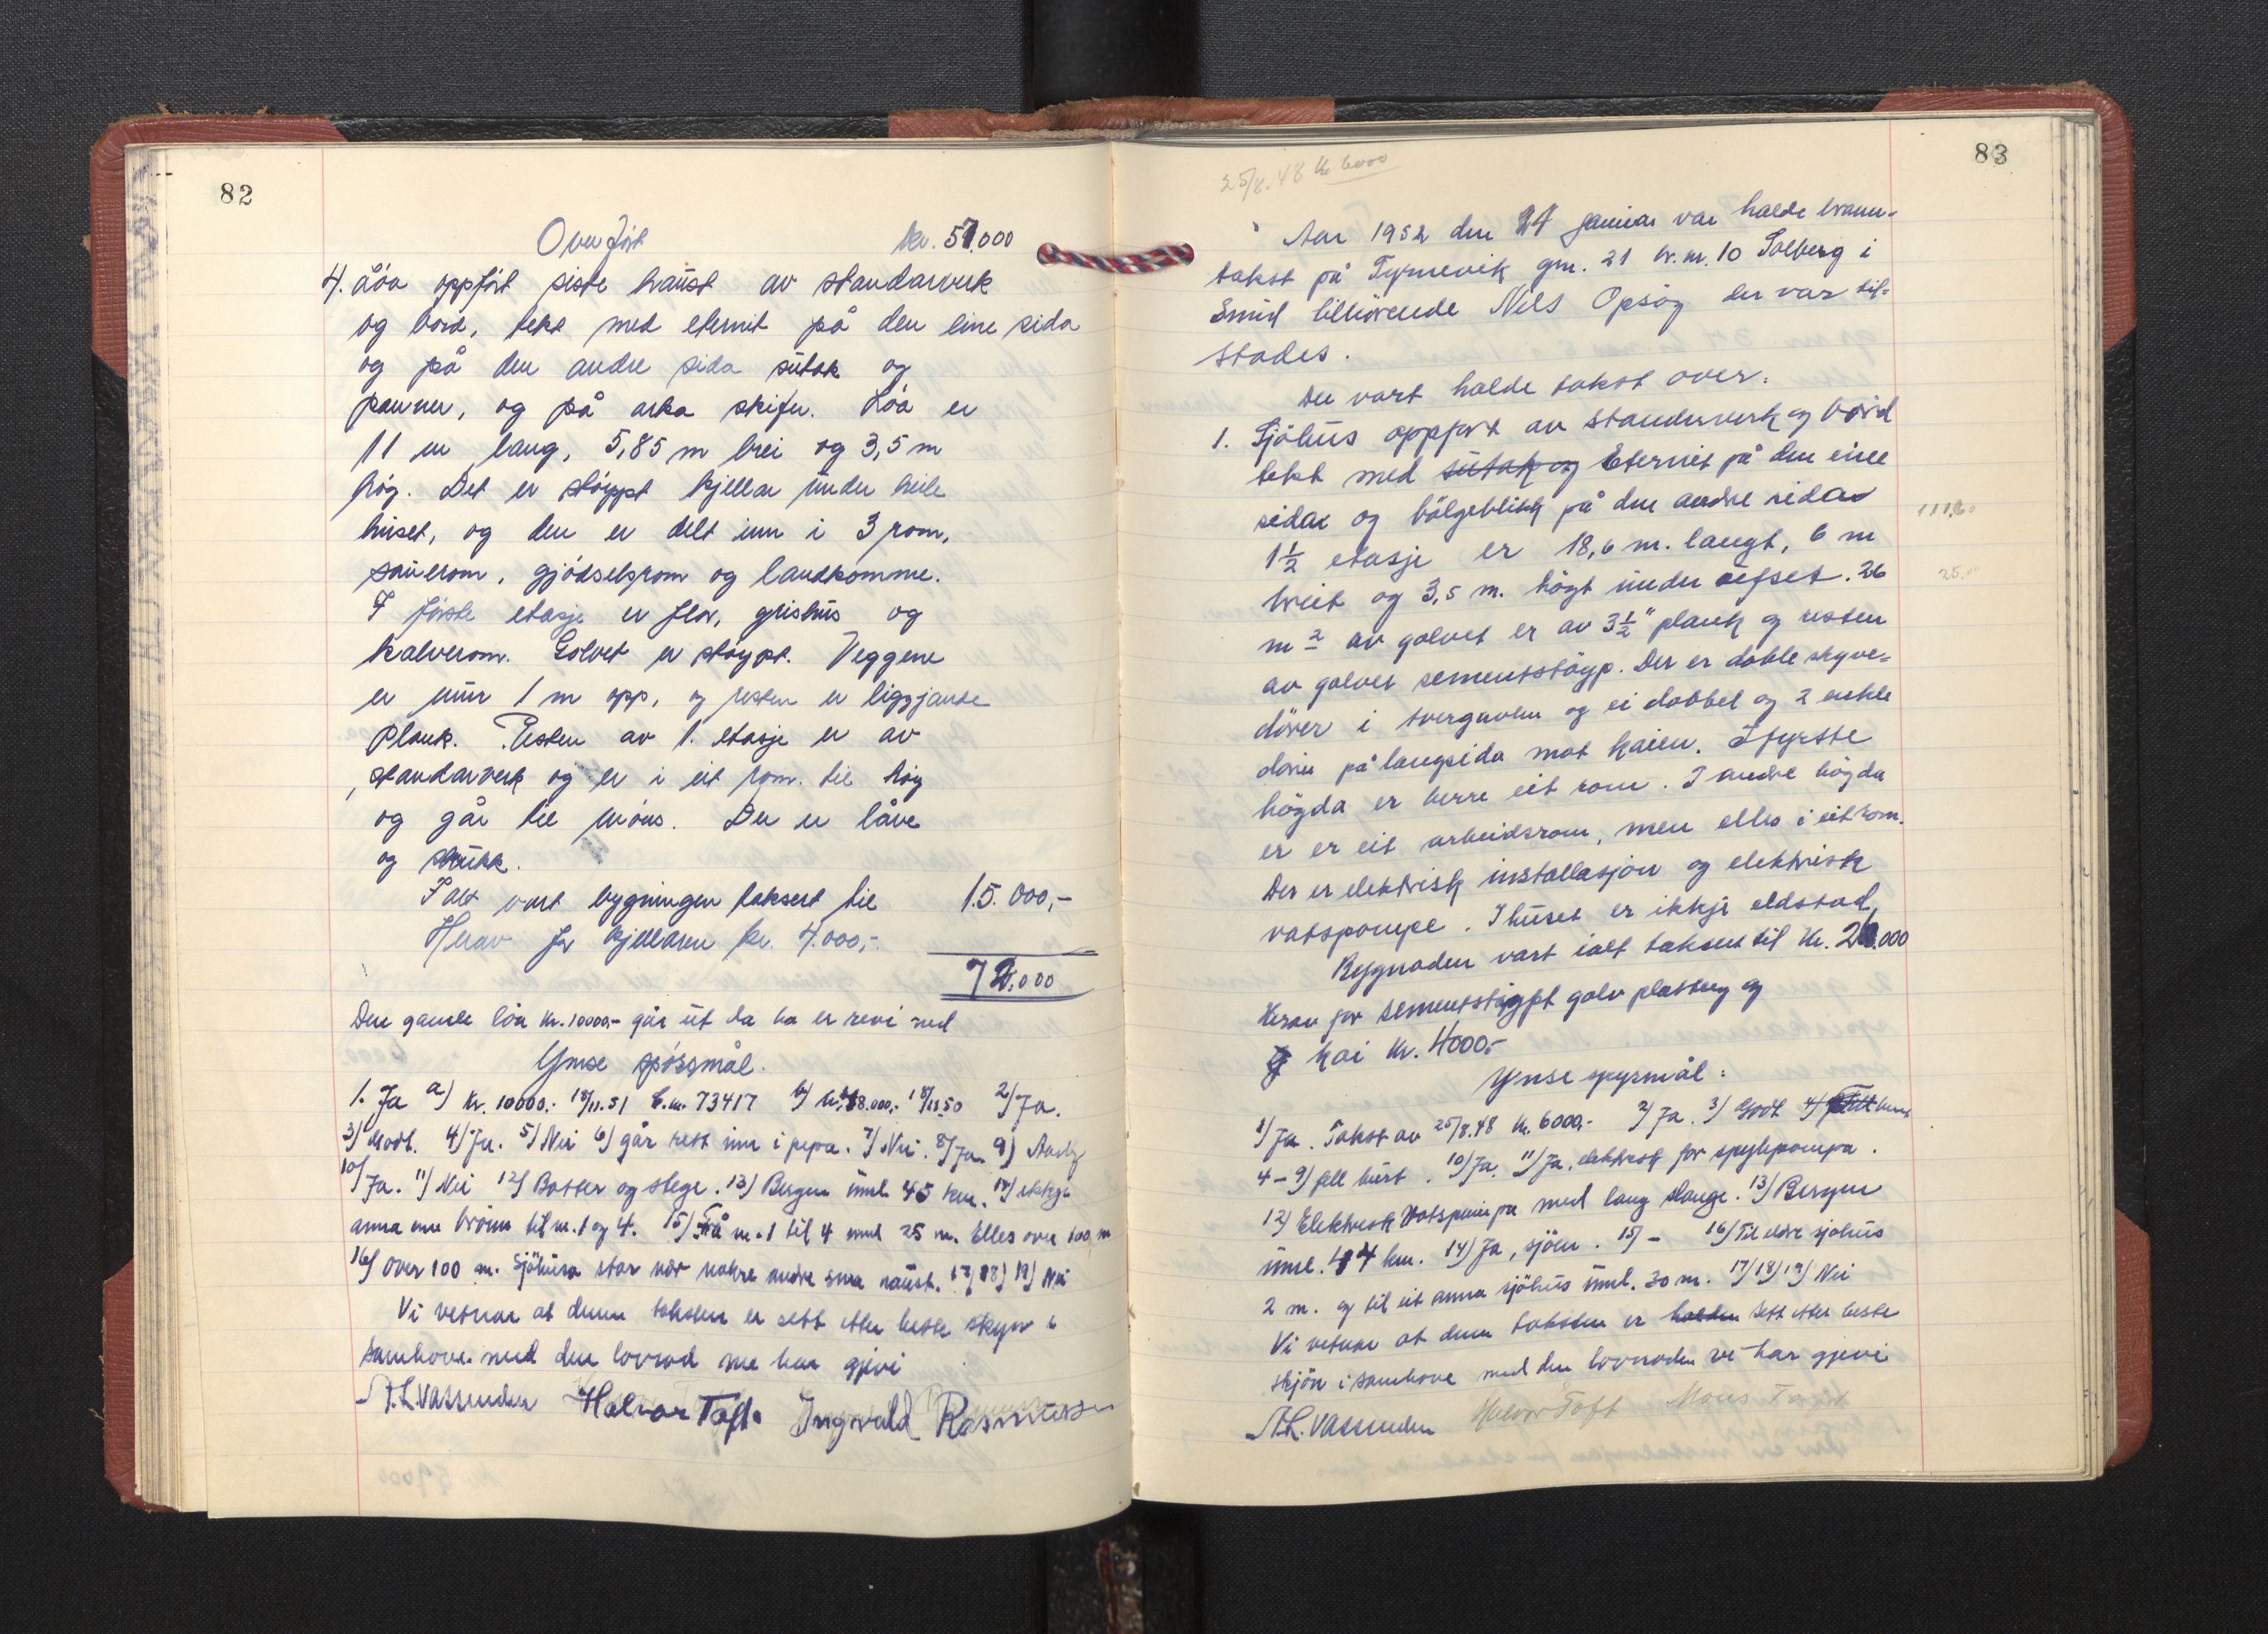 82
Overført kr. 57.000
4. Løa oppført siste haust av standarverk
og bord, tekt med eternit på den eine sida
og på den andre sida sutak og
panner, og på arka skifer. Løa er
11 m lang, 5,85 m brei og 3,5 m
høg. Det er støypt kjellar under heile
huset, og den er delt inn i 3 rom,
sauerom, gjødselsrom og landkomme.
I første etasje er flor, grishus og
kalverom. Golvet er støypt. Veggene
er mur 1 m opp, og resten er liggjande
plank. Resten av 1. etasje er av
standarverk og er i eit rom til høy
og går til møns. Der er låve
og
I alt vart bygningen taksert til 15.000,-
Herav for kjellaren kr. 4.000,-
72.000
Den gamle løa kr. 10000,- går ut da ho er revi ned
Ymse spøssmål.
1. Ja a) Kr. 10000,- 18/11.51 73417 b) kr. 48.000,- 18/11.50 2) Ja.
3) Godt. 4) Ja. 5) Nei 6) går rett inn i pipa. 7) Nei. 8) Ja 9)
10) Ja. 11) Nei 12) Bøtter og stege. 13) Bergen uml. 45 km. 14) ikkje
anna enn brønn til nr. 1 og 4. 15) Frå nr. 1 til 4 uml 25 m. Elles over 100 m
16) Over 100 m. Sjøhusa står nær nokre andre små naust. 17) 18) 19) Nei
Vi vitnar at denne taksten er sett etter beste skjøn i
samhove med den lovnad me har gjevi
A.L. Vassenden Halvor Toft. Ingvald Rasmussen
83
25/8.48 Kr 6000
Aar 1952 den 24 januar var halde brann-
takst på Tyrnevik gnr. 21 br.nr. 10 Solberg i
tilhørende Nils Opsøy der var til-
stades.
Der vart halde takst over:
1. Sjøhus oppført av standerverk og bord
tekt med sutak og Eternit på den eine
sida og bølgeblikk på den andre sida
111,60
1½ etasje er 18,6 m. langt, 6 m
breit og 3,5 m. høgt under ufset. 26
25.00
m² av golvet er av 3½" plank og resten
av golvet sementstøyp. Der er doble skyve-
dører i tvergavlen og ei dobbel og 2 enkle
dører på langsida mot kaien. I fyrste
høgda er berre eit rom. I andre høgda
er er eit arbeidsrom, men elles i eit rom.
Der er elektrisk installasjon og elektrisk
vatspompe. I huset er ikkje eldstad,
Bygnaden vart ialt taksert til Kr. .000
Herav for sementstøypt golv plastring og
og kai kr. 4000,-
Ymse spysmål:
1) Ja. Takst av 25/8.48 Kr. 6000,- 2) Ja. 3) Godt 4)
4-9) fell burt. 10) Ja. 11) Ja, elektrisk for spylepompa.
12) Elektrisk Vatspumpa med lang slange. 13) Bergen
uml. 44 km. 14) Ja, sjøen. 15) - 16) Til eldre sjøhus
2 m. og til eit anna sjøhus uml. 30 m. 17) 18) 19) Nei
Vi vitnar at denn taksten er halden sett etter beste
skjøn i samhove med den lovnaden vi har gjevi
A.L. Vassenden Halvor Toft Mons Toft